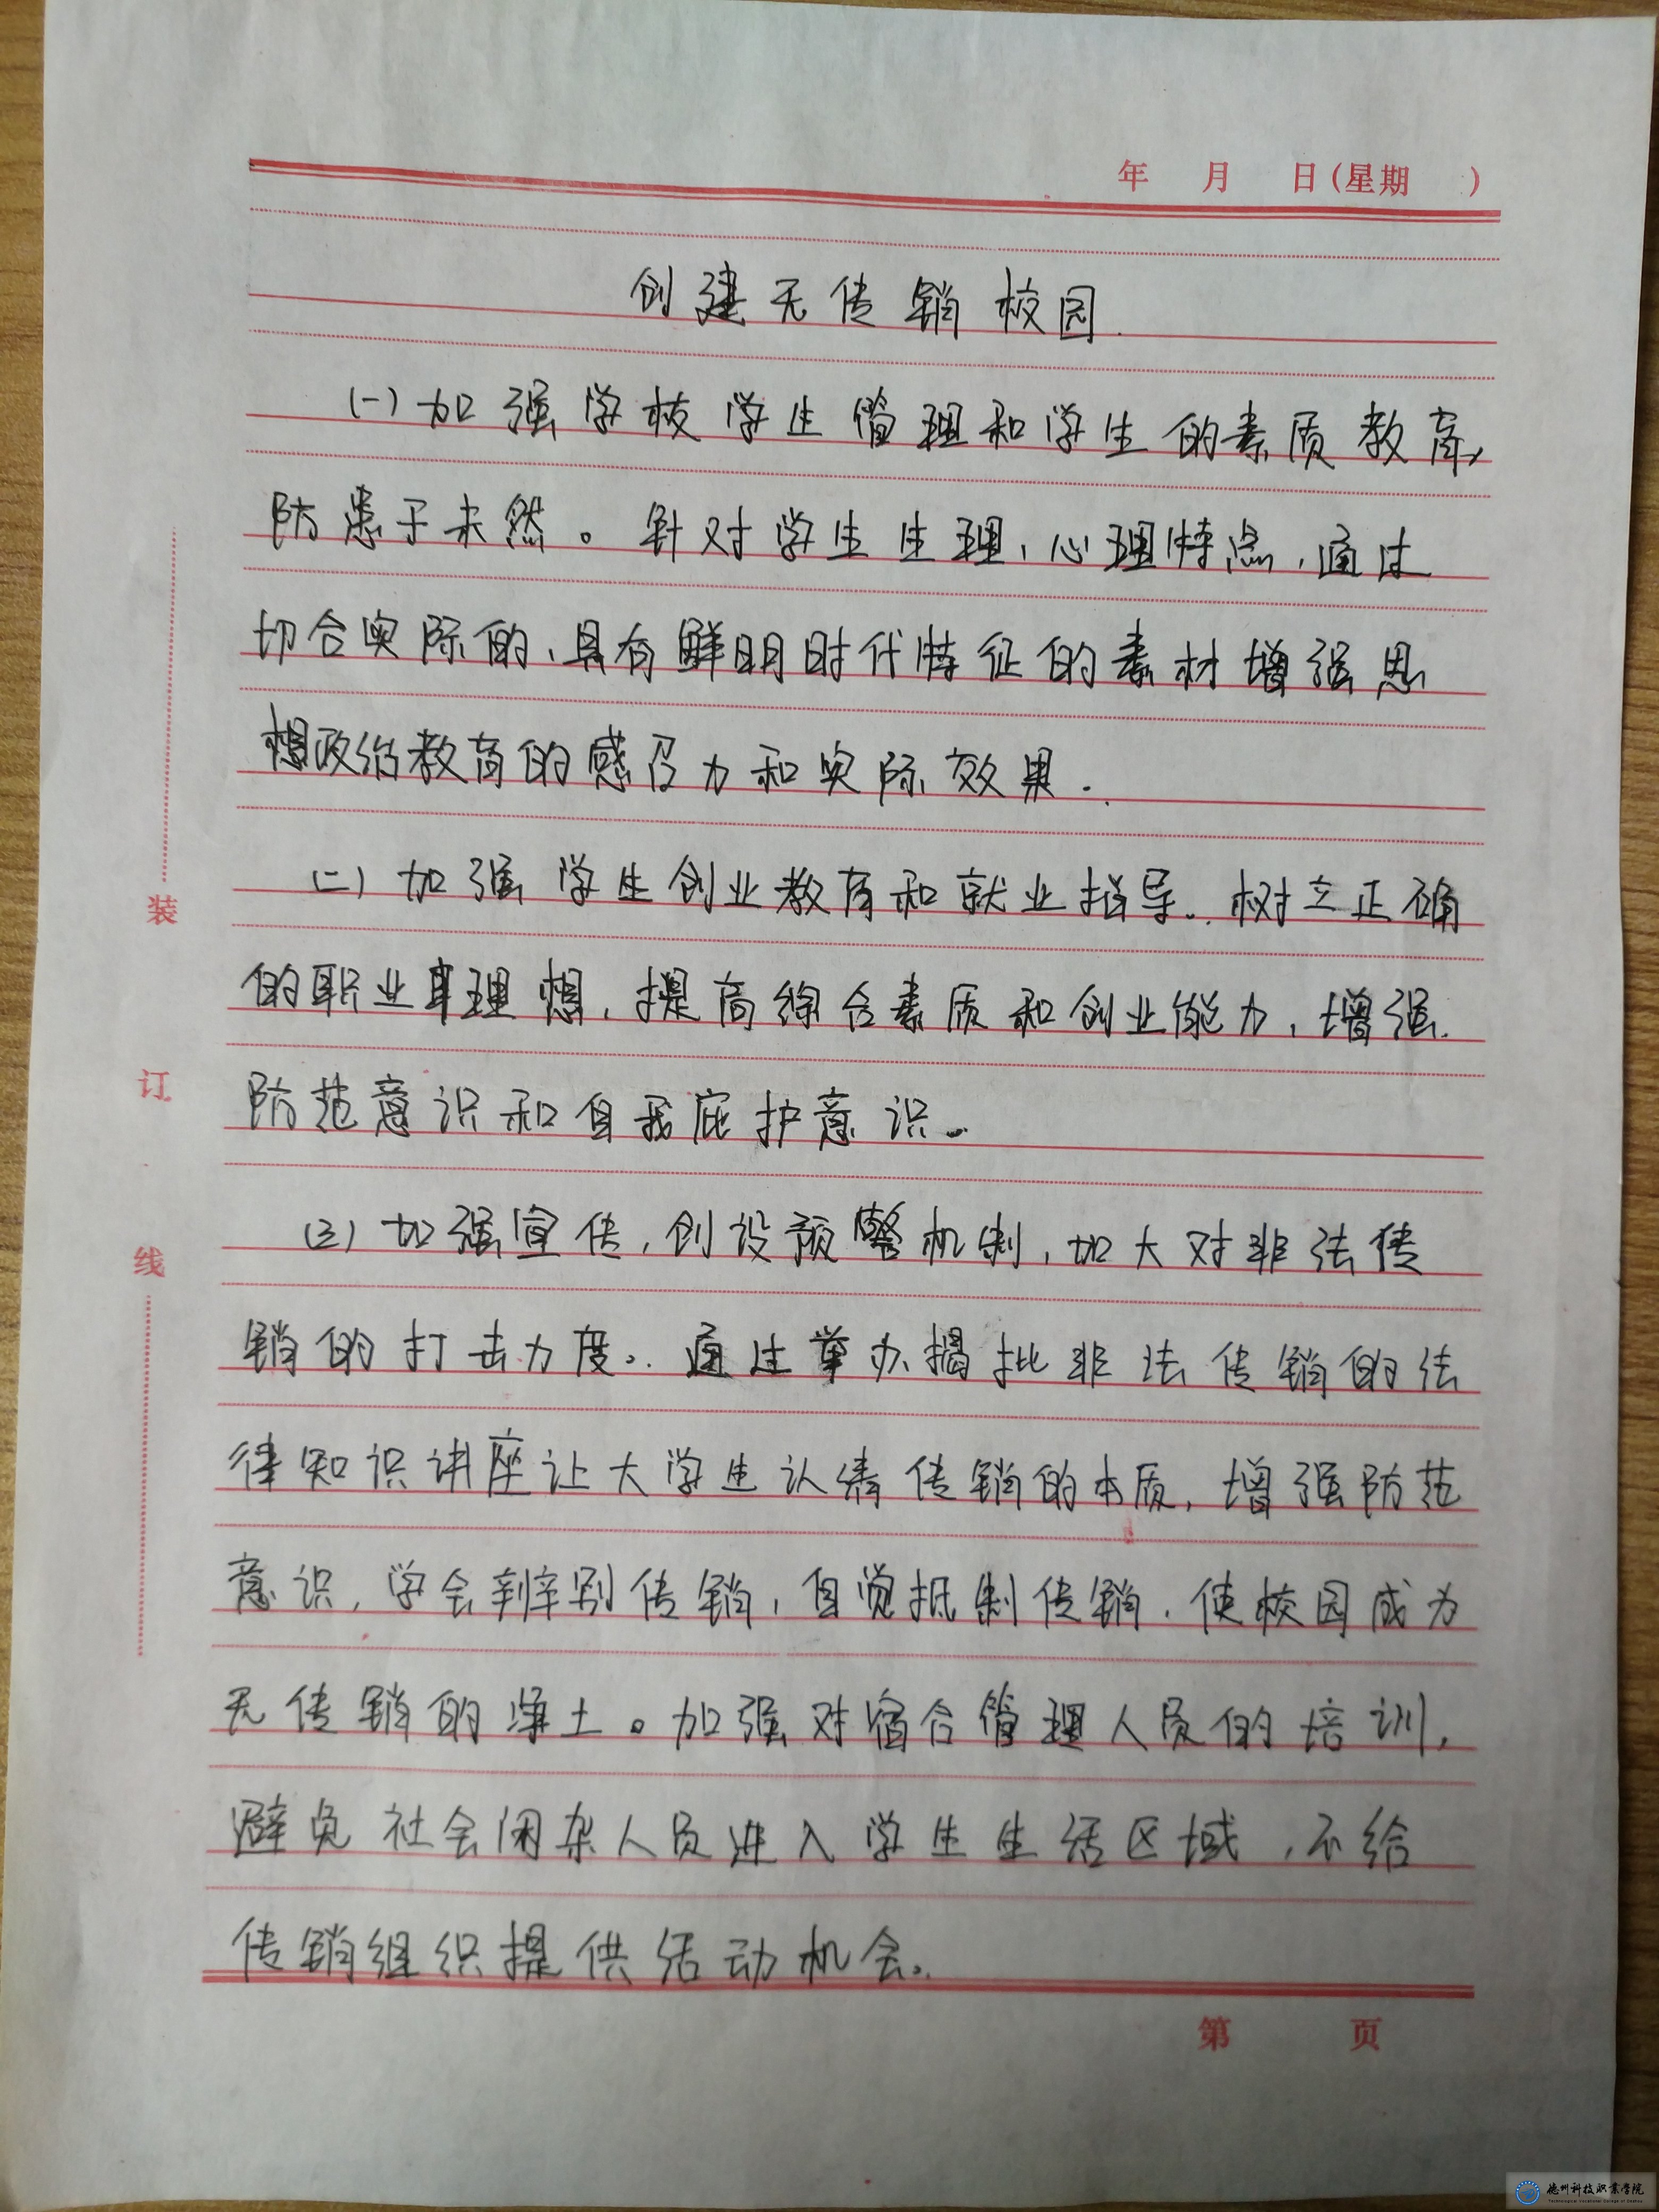 年 月 日(星期 )
创建无传销校园
(一)加强学校学生管理和学生的素质教育,
防患于未然。针对学生生理,心理特点,通过
切合实际的、具有鲜明时代特征的素材增强思
想政治教育的感召力和实际效果.
(二)加强学生创业教育和就业指导.树立正确
的职业理想,提高综合素质和创业能力,增强
防范意识和自我庇护意识。
(三)加强宣传,创设预警机制,加大对非法传
销的打击力度。通过举办揭批非法传销的法
律知识讲座让大学生认清传销的本质,增强防范
意识,学会辨别传销,自觉抵制传销.使校园成为
无传销的净土。加强对宿舍管理人员的培训,
避免社会闲杂人员进入学生生活区域,不给
传销组织提供活动机会。
装
订
线
第 页
德州科技职业学院